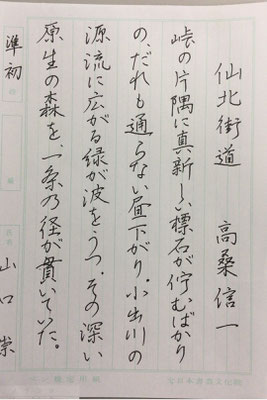 仙北街道 高桑信一
峠の片隅に真新しい標石が佇むばかり
の、だれも通らない昼下がり。小出川の
源流に広がる緑が波をうつ。その深い
原生の森を、一条の径が貫いていた。
準初
山口崇